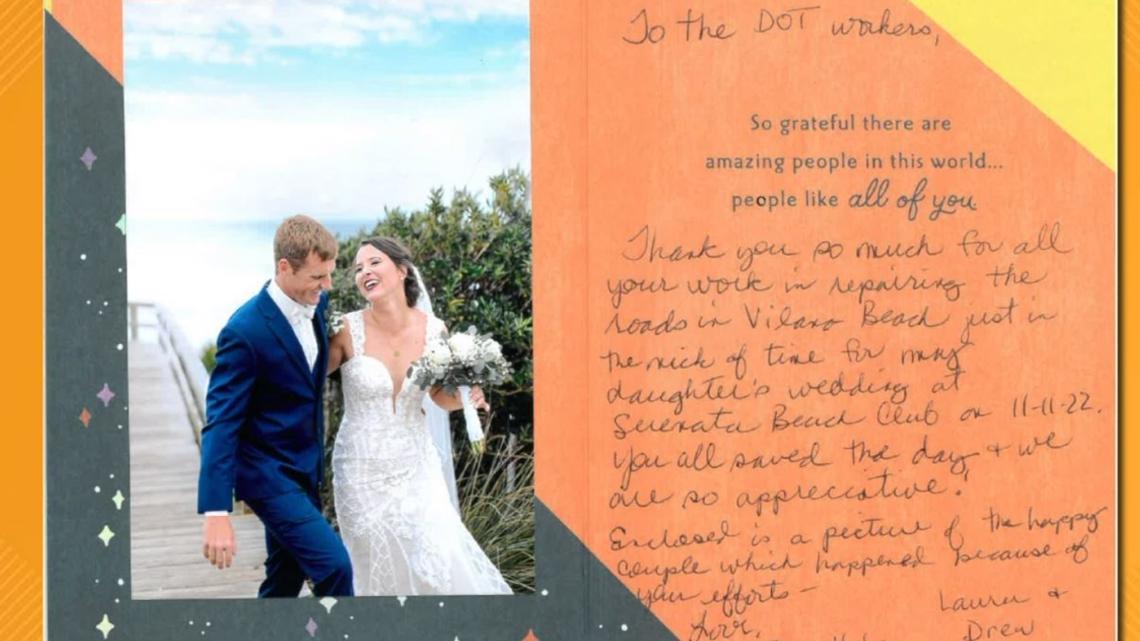 To the DOT workers,
So grateful there are
amazing people in this world...
people like all of you
Thank you so much for all
your work in repairing the
roads in Vilano Beach just in
the nick of time for my
daughter's wedding at
Serenata Beach Club on 11-11-22.
You all saved the day & we
are so appreciative!
Enclosed is a picture of the happy
couple which happened because of
your efforts-
Love,
Lauren &
Drew